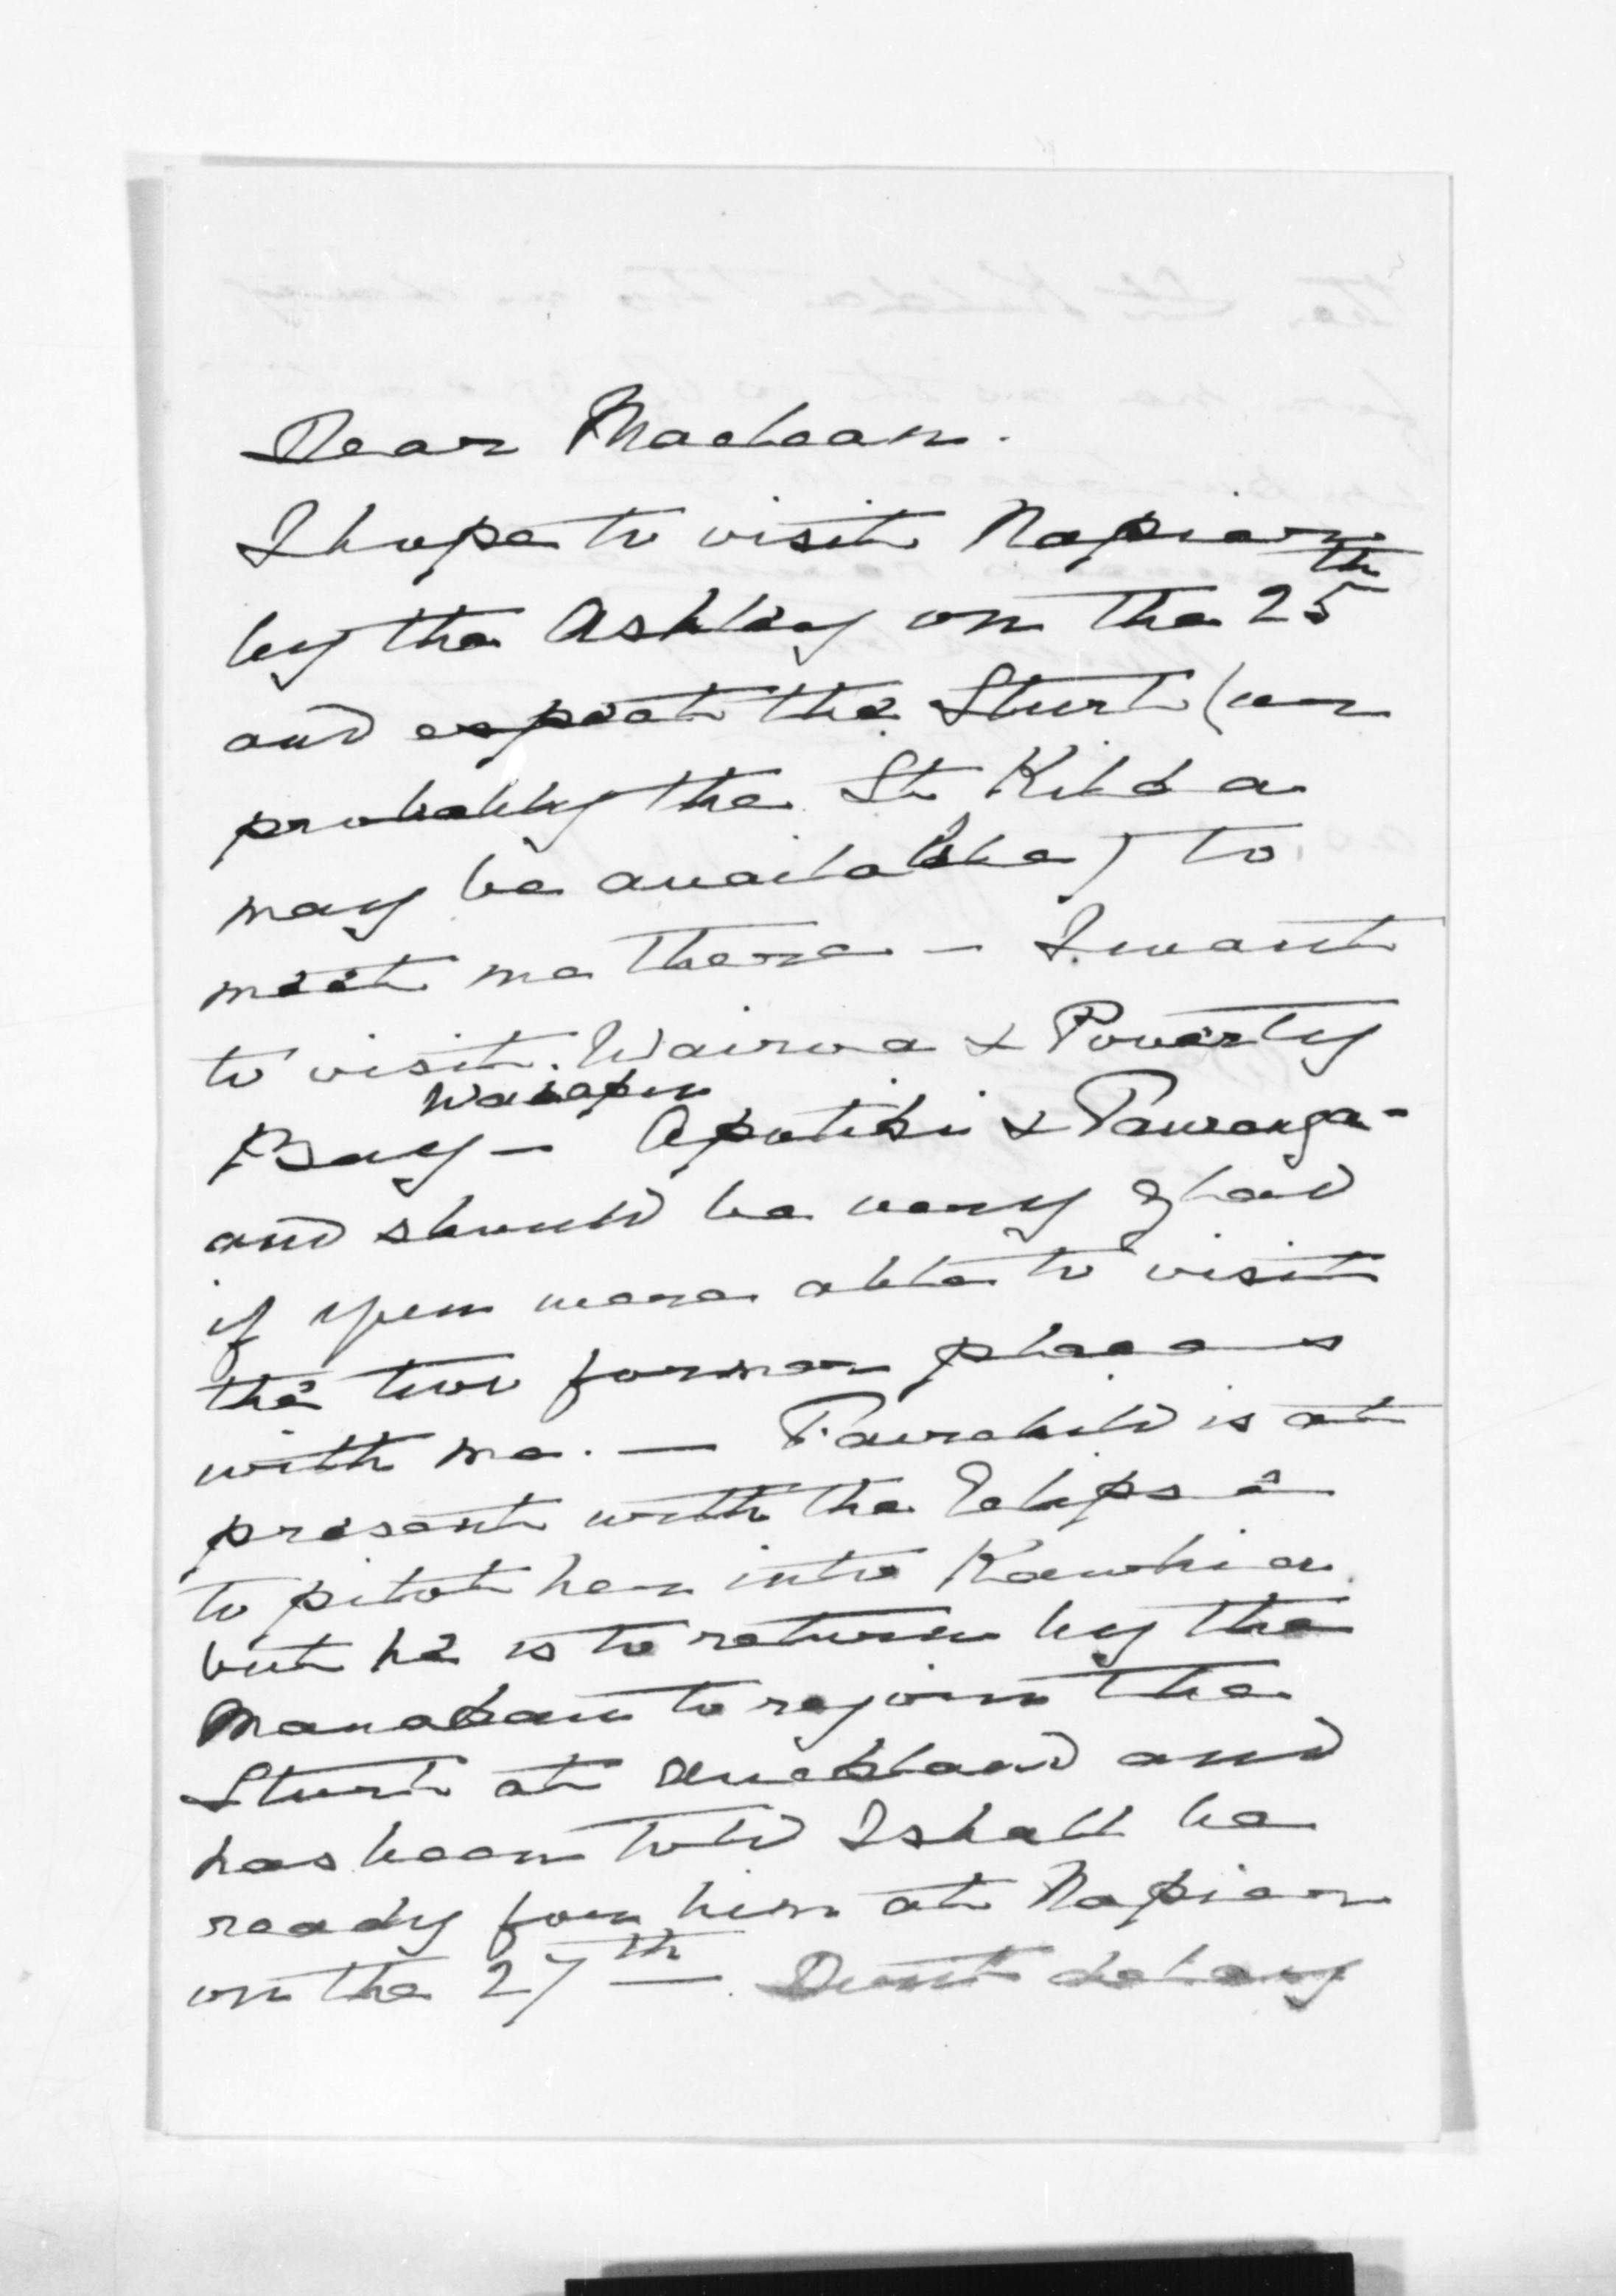 Dear Maclean.
I hope to visit Napier
by the Ashley on the 25th
and expect the Sturt (or
probably the St Kilda
may be available) to
meet me there - I want
to visit Wairoa & Poverty
Bay - Waiapu Apotiki & Tauranga -
and should be very glad
if you were able to visit
the two former places
with me. — Fairchild is at
present with the Eclipse
to pilot her into Kawhia
but he is to return by the
Manakau to rejoin the
Sturt at Auckland and
has been told I shall be
ready for him at Napier
on the 27th — Dont delay